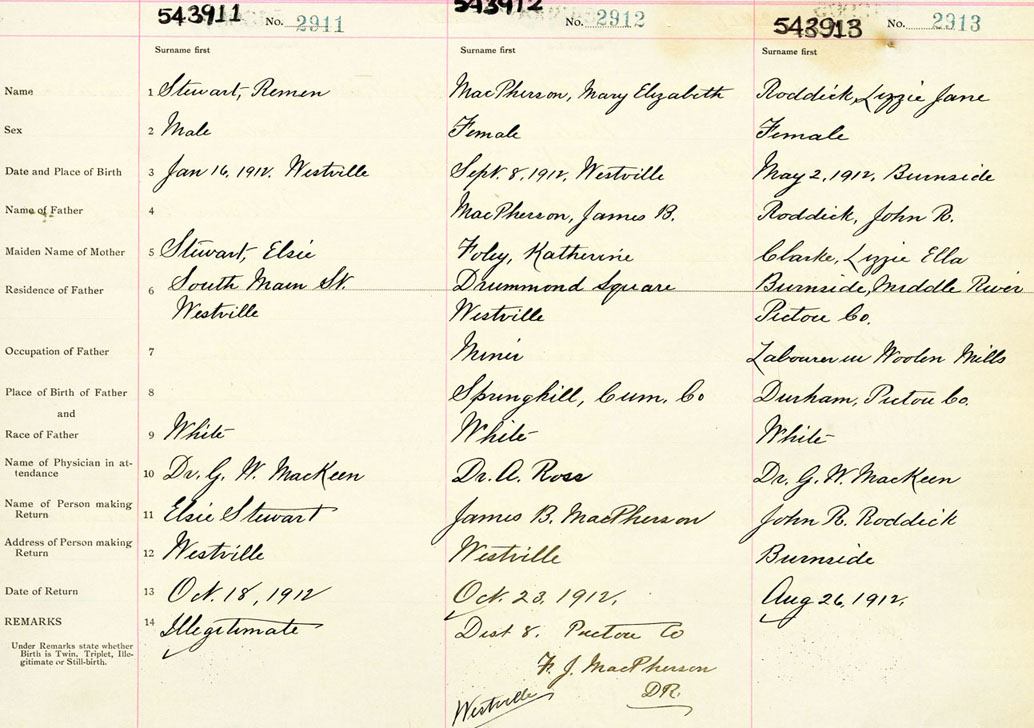 543911 No. 2911 543912 No. 2912 543913 No. 2913
Surname first Surname first Surname first
Name 1 Stewart, Remen MacPherson, Mary Elizabeth Roddick, Lizzie Jane
Sex 2 Male Female Female
Date and Place of Birth 3 Jan 16, 1912. Westville Sept. 8, 1912, Westville May 2, 1912, Burnside
Name of Father 4 MacPherson, James B. Roddick, John R.
Maiden Name of Mother 5 Stewart, Elsie Foley, Katherine Clarke, Lizzie Ella
Residence of Father 6 South Main St. Drummond Square Burnside, Middle River
Westville Westville Pictou Co.
Occupation of Father 7 Miner Labourer in Woolen Mills
Place of Birth of Father 8 Springhill, Cum. Co Durham, Pictou Co.
and
Race of Father 9 White White White
Name of Physician in at-
tendance 10 Dr. G. W. MacKeen Dr. A. Ross Dr. G. W. MacKeen
Name of Person making
Return 11 Elsie Stewart James B. MacPherson John R. Roddick
Address of Person making
Return 12 Westville Westville Burnside
Date of Return 13 Oct. 18, 1912 Oct. 23, 1912. Aug 26, 1912.
REMARKS 14 Illegitimate Dist 8. Pictou Co
Under Remarks state whether
Birth is Twin, Triplet, Ille-
gitimate or Still-birth.
F. J. MacPherson
DR.
Westville